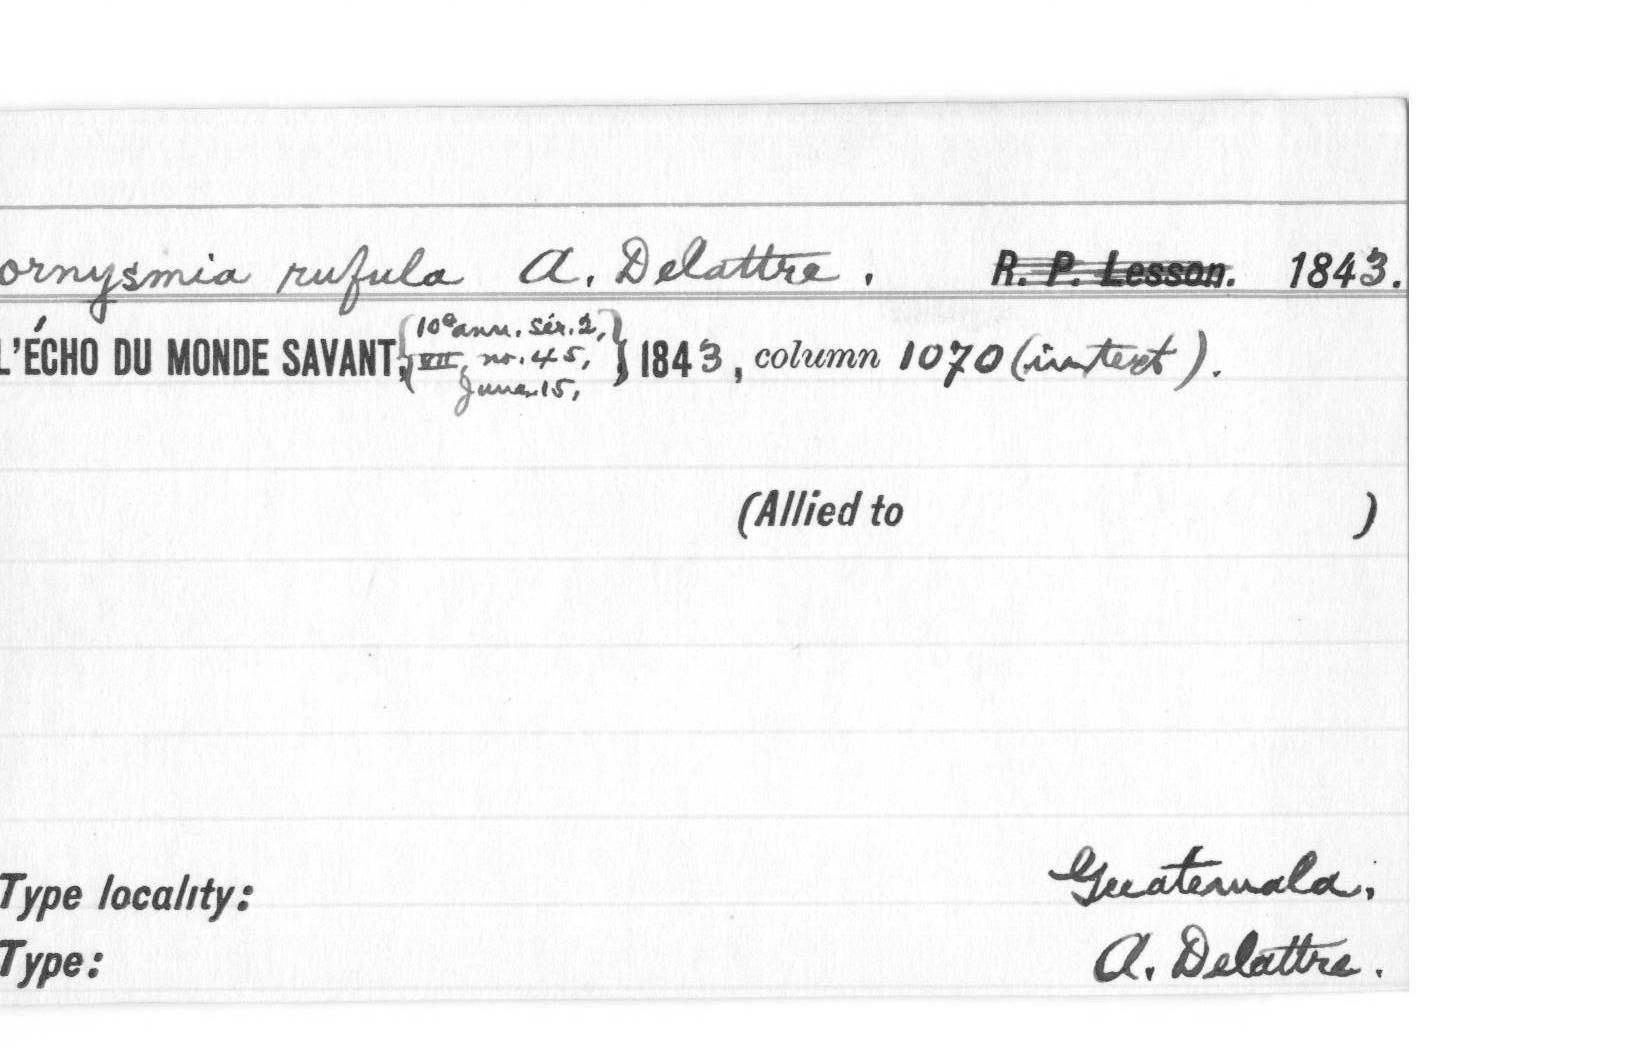 ornysmia rufula A. Delattre. R. P. Lesson. 1843.
L'ÉCHO DU MONDE SAVANT, {10e ann. Sér. 2,
VII, no. 45,
June 15,} 1843, column 1070 (in text).
(Allied to )
Type locality: Guatemala,
Type: A. Delattre.